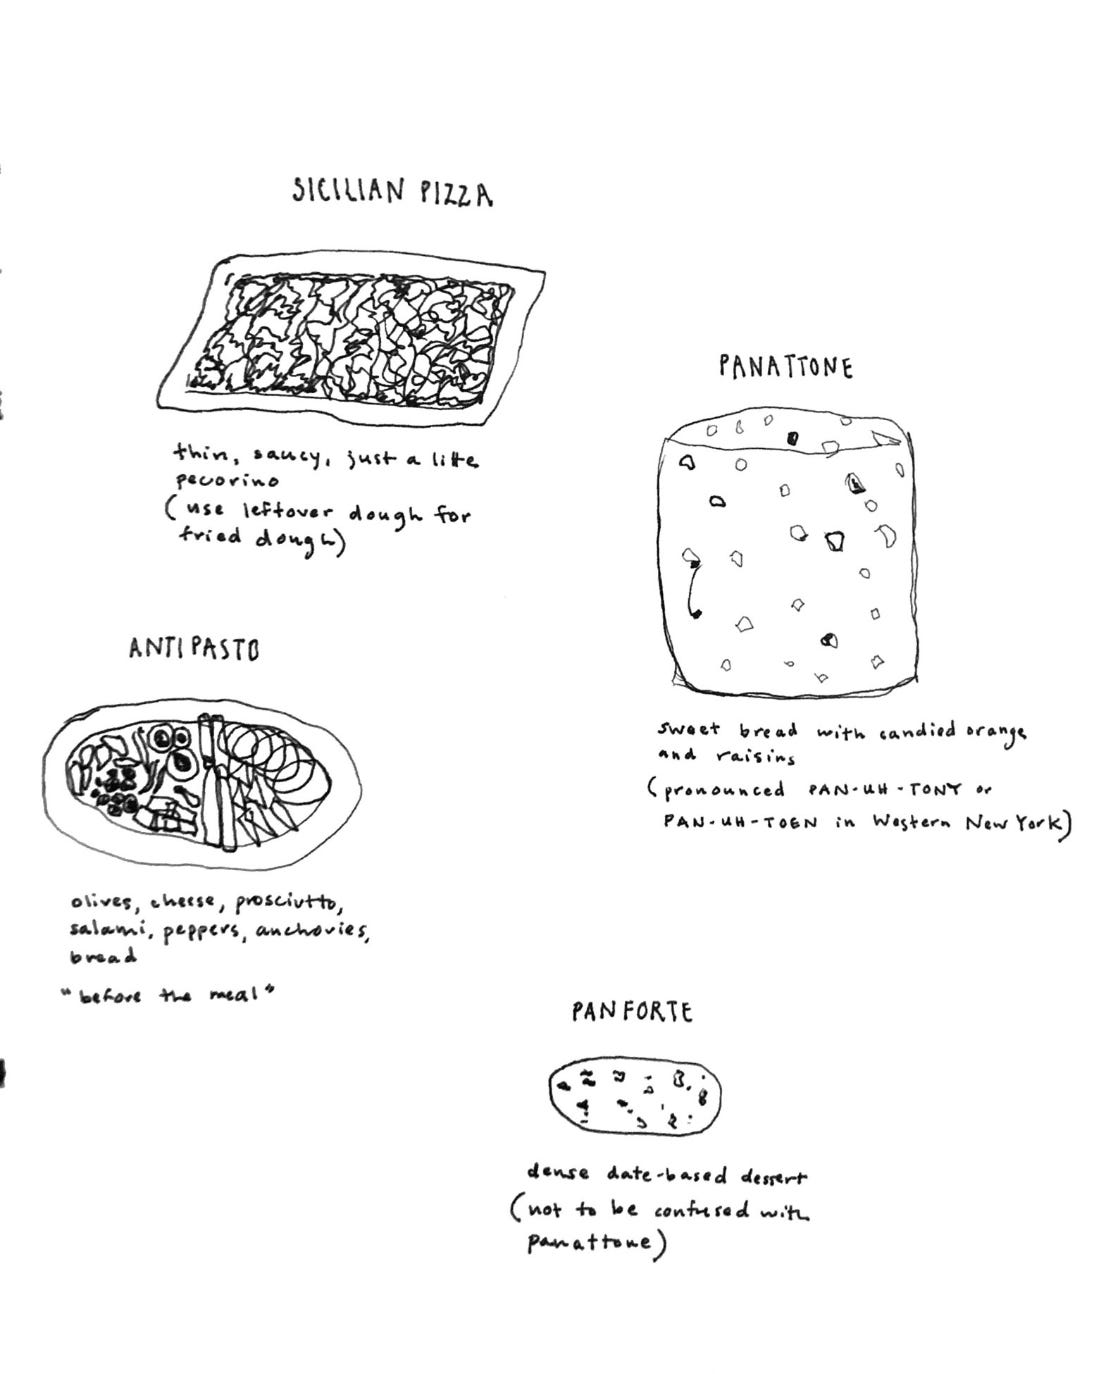 SICILIAN PIZZA
thin, saucy, just a little
pecorino
(use leftover dough for
fried dough)
PANATTONE
sweet bread with candied orange
and raisins
(pronounced PAN-UH-TONY or
PAN-UH-TOEN in Western New York)
ANTIPASTO
olives, cheese, prosciutto,
salami, peppers, anchovies,
bread
"before the meal"
PANFORTE
dense date-based dessert
(not to be confused with
panattone)